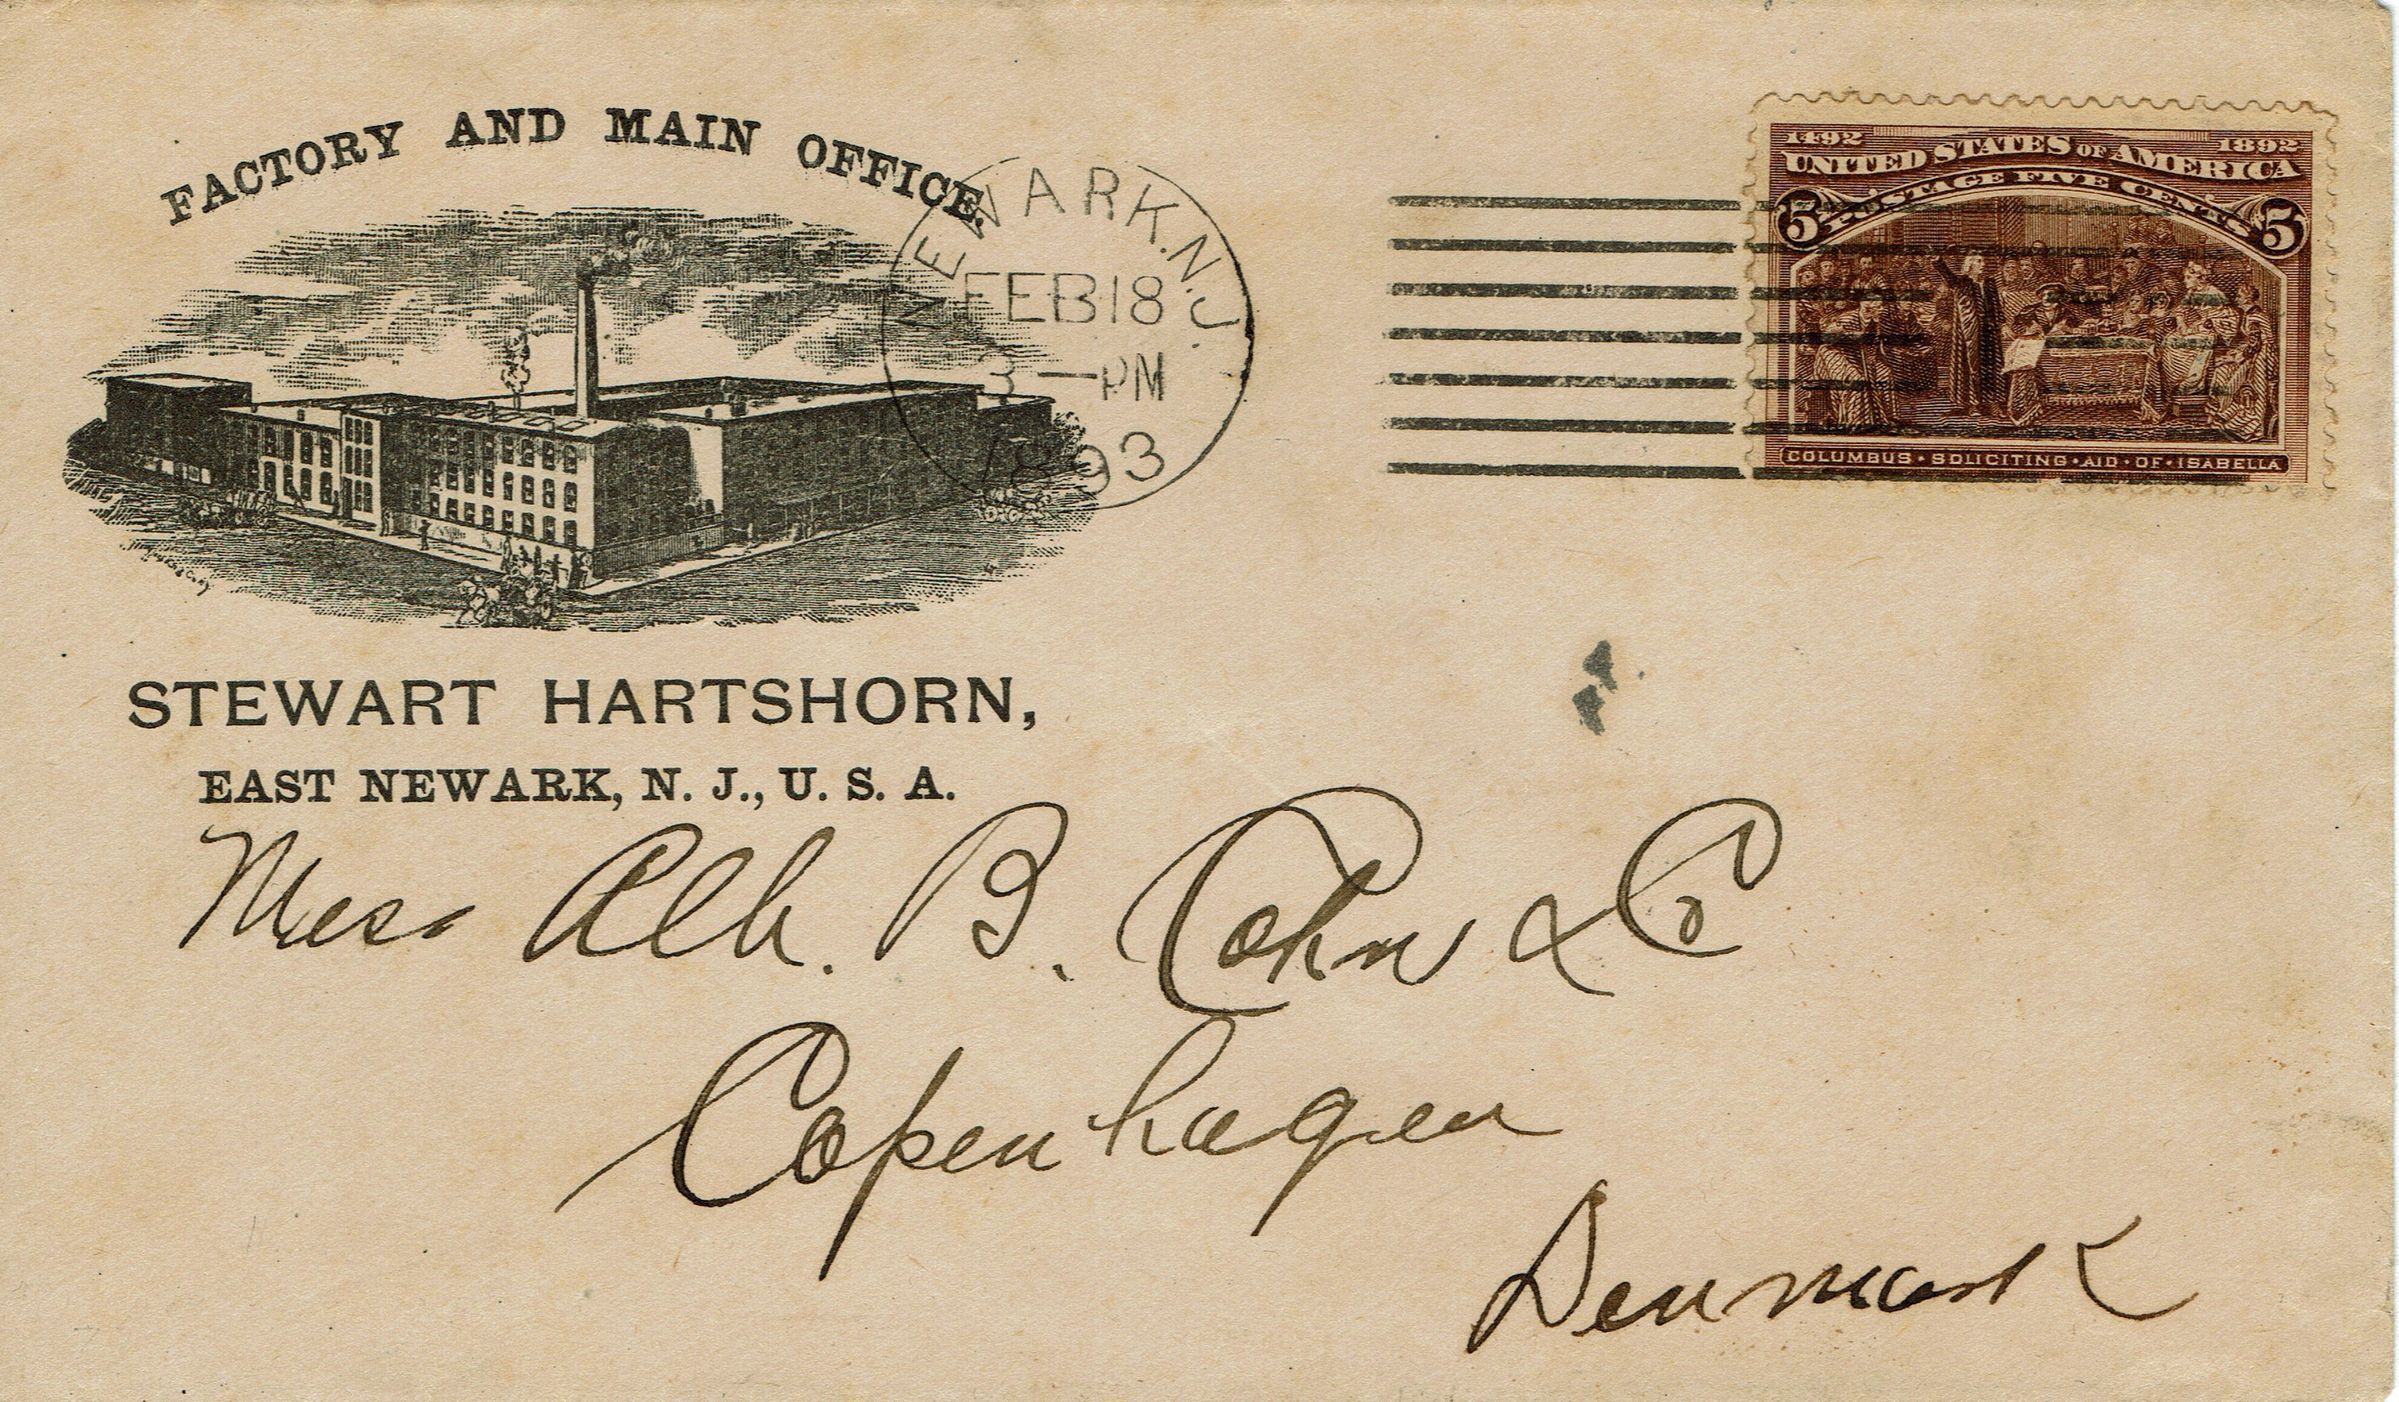 FACTORY AND MAIN OFFICE.
NEWARK. N.J.
FEB 18
3 — PM
1893
1492 1892
UNITED STATES OF AMERICA
5 POSTAGE FIVE CENTS 5
COLUMBUS · SOLICITING · AID · OF · ISABELLA
STEWART HARTSHORN,
EAST NEWARK, N. J., U. S. A.
Mess Alb. B. Cohn & Co
Copenhagen
Denmark